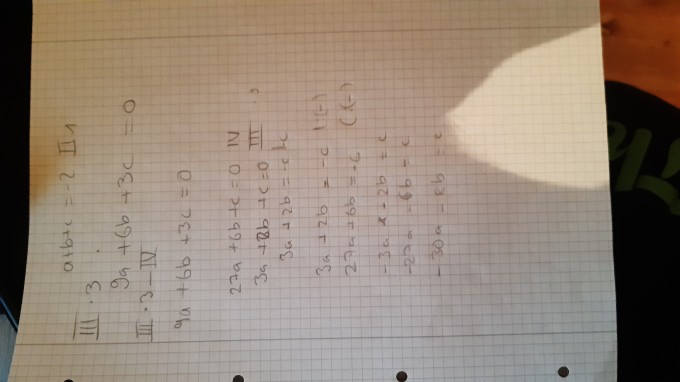 a+b+c = -2 II 1
III · 3
9a + 6b + 3c = 0
III · 3 - IV
9a + 6b + 3c = 0
27a + 6b + c = 0 IV
3a + 2b + c = 0 III · 3
3a + 2b = -c
3a + 2b = -c | · (-)
27a + 6b = -c | · (-)
-3a - 2b = c
-27a - 6b = c
-30a - 8b = c